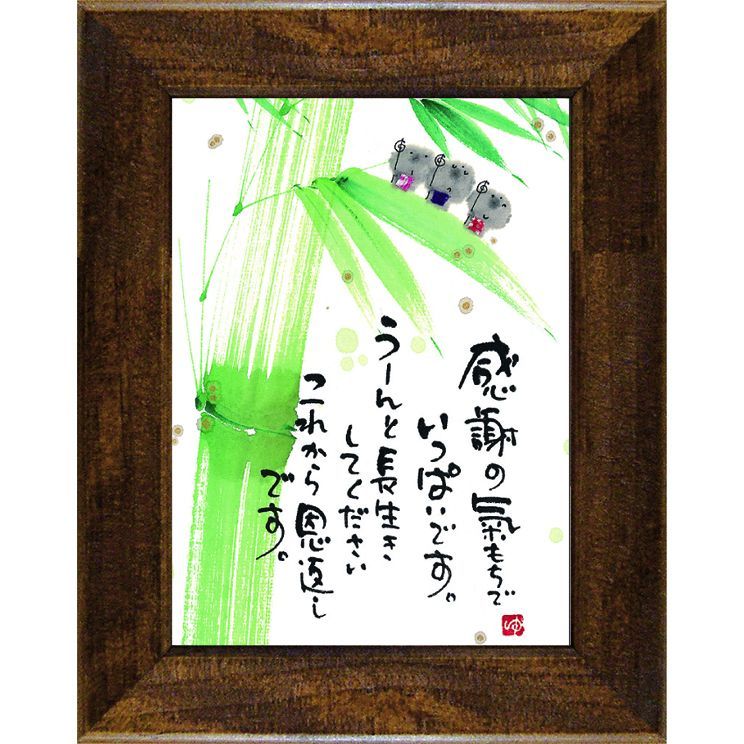 感謝の氣もちで
いっぱいです。
うーんと長生き
してください
これから恩返し
です。
ゆ